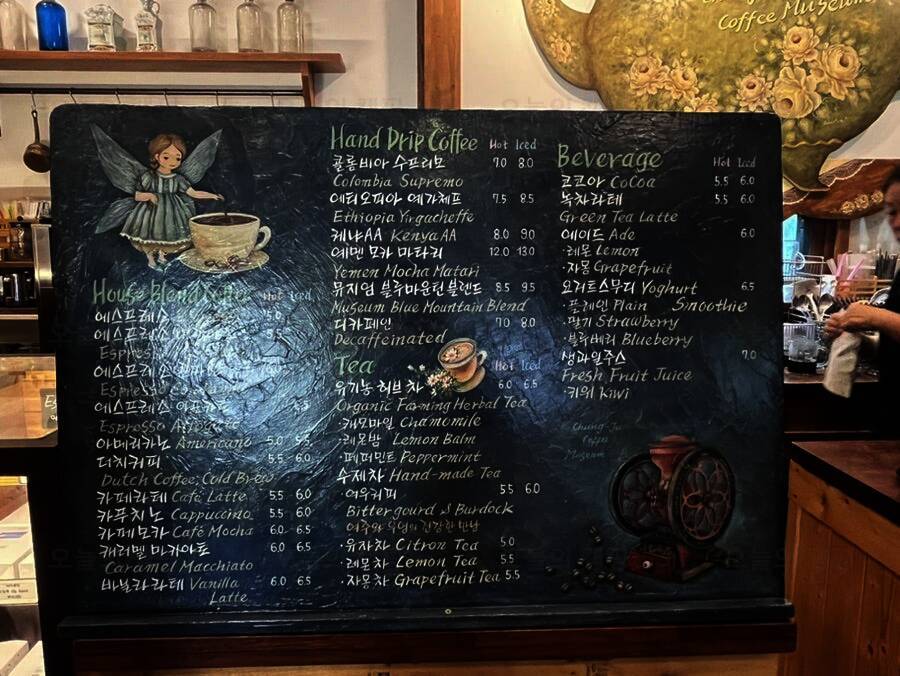 Coffee Museum
Hand Drip Coffee Hot Iced
콜롬비아 수프리모 7.0 8.0
Colombia Supremo
에티오피아 예가체프 7.5 8.5
Ethiopia Yirgacheffe
케냐AA Kenya AA 8.0 9.0
예멘 모카 마타리 12.0 13.0
Yemen Mocha Matari
뮤지엄 블루마운틴 블렌드 8.5 9.5
Museum Blue Mountain Blend
디카페인 7.0 8.0
Decaffeinated
Tea Hot Iced
유기농 허브차 6.0 6.5
Organic Farming Herbal Tea
·캐모마일 Chamomile
·레몬밤 Lemon Balm
·페퍼민트 Peppermint
수제차 Hand-made Tea
·여우커피 5.5 6.0
Bitter gourd & Burdock
·유자차 Citron Tea 5.0
·레몬차 Lemon Tea 5.0
·자몽차 Grapefruit Tea 5.5
House Blend Hot Iced
에스프레소 5.0
에스프레소
Espresso
에스프레소
Espresso
에스프레소
Espresso
아메리카노 Americano 5.0 5.5
더치커피 5.5 6.0
Dutch Coffee: Cold Brew
카페라떼 Café Latte 5.5 6.0
카푸치노 Cappuccino 5.5 6.0
카페모카 Café Mocha 6.0 6.5
캐러멜 마키아토 6.0 6.5
Caramel Macchiato
바닐라라떼 Vanilla 6.0 6.5
Latte
Beverage Hot Iced
코코아 CoCoa 5.5 6.0
녹차라떼 5.5 6.0
Green Tea Latte
에이드 Ade 6.0
·레몬 Lemon
·자몽 Grapefruit
요거트스무디 Yoghurt 6.5
·플레인 Plain Smoothie
·딸기 Strawberry
·블루베리 Blueberry
생과일주스 7.0
Fresh Fruit Juice
·키위 Kiwi
Chung-Ju
Coffee
Museum